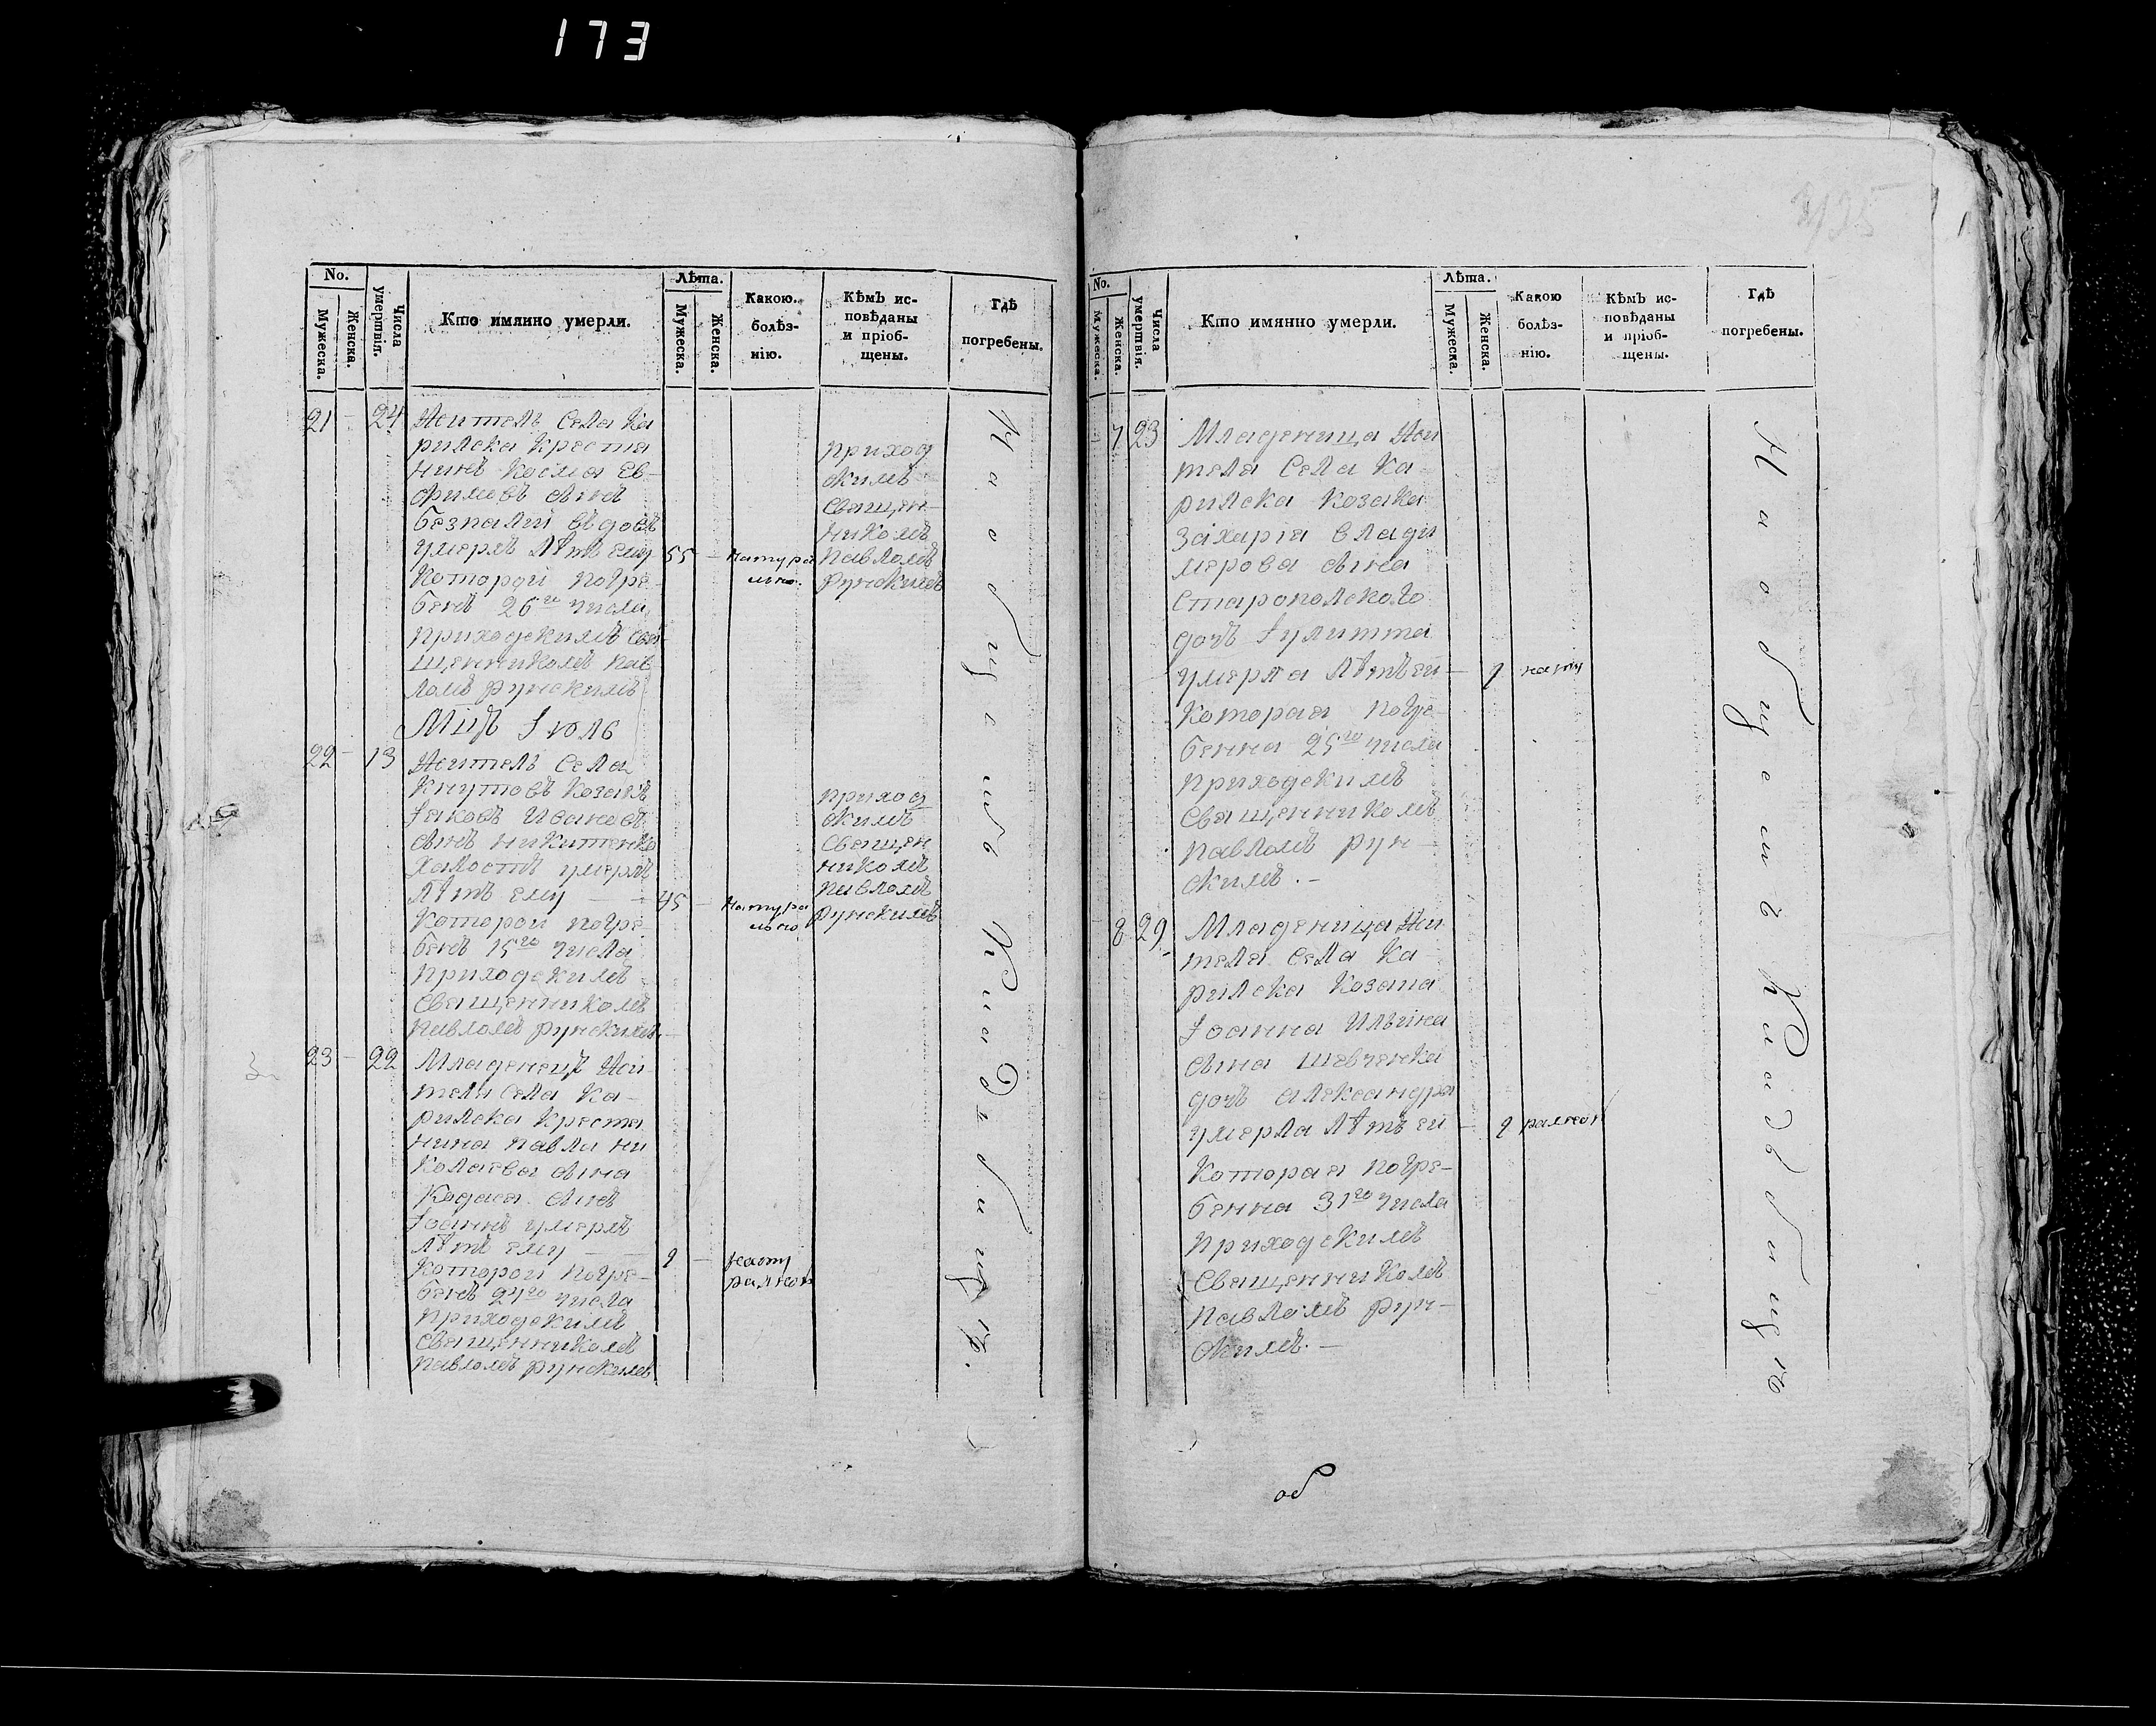 173
No.
Мужеска.
Женска.
Числа умертвія.
Кто имянно умерли.
Лѣта.
Мужеска.
Женска.
Какою. болѣз- нію.
Кѣмъ ис- повѣданы и пріоб- щены.
Гдѣ погребены.
21 - 24 Жителъ села Ка
рилска крестя
нинъ Косма Ев-
фимовъ сынъ
безпалій вдовъ
умерлъ лѣтъ ему 55 - натура
льно.
Которой погре-
бенъ 26го числа
приходскимъ свя
щенникомъ Пав
ломъ Рунскимъ
приход
скимъ
священ-
никомъ
Павломъ
Рунскимъ
Мцъ Іюль
22 - 13 Жителъ села
Кнутовъ козакъ
Іяковъ Ивановъ
сынъ Никитенко
холостъ умерлъ
лѣтъ ему - 45 - натура
льно
Которой погре-
бенъ 15го числа
приходскимъ
священникомъ
Павломъ Рунскимъ.
приход
скимъ
священ
никомъ
Павломъ
Рунскимъ
23 - 22 Младенецъ жи
теля села Ка-
рилска крестя
нина Павла Ни
колаева сына
сынъ
Іоаннъ умерлъ
лѣтъ ему - - нату
ралной
Которой погре-
бенъ 24го числа
приходскимъ
священникомъ
Павломъ Рунскимъ
На обще мъ Кладъбищѣ.
No.
Мужеска.
Женска.
Числа умертвія.
Кто имянно умерли.
Лѣта.
Мужеска.
Женска.
Какою болѣз- нію.
Кѣмъ ис- повѣданы и пріоб- щены.
Гдѣ погребены.
- 7 23 Младеница жи
теля села Ка-
рилска козака
Захарія Влади
мерова сына
Старополского
дочъ Іулитта
умерла лѣтъ ей - нату
Которая погре-
бенна 25го числа
приходскимъ
священникомъ
Павломъ Рун-
скимъ. -
8 29 Младеница жи
теля села Ка-
рилска козака
Іоанна Ильина
сына Шевченка
дочъ Александра
умерла лѣтъ ей - ралной
Которая погре-
бенна 31го числа
приходскимъ
священникомъ
Павломъ Рун-
скимъ. -
На общемъ Кладъбищѣ
об